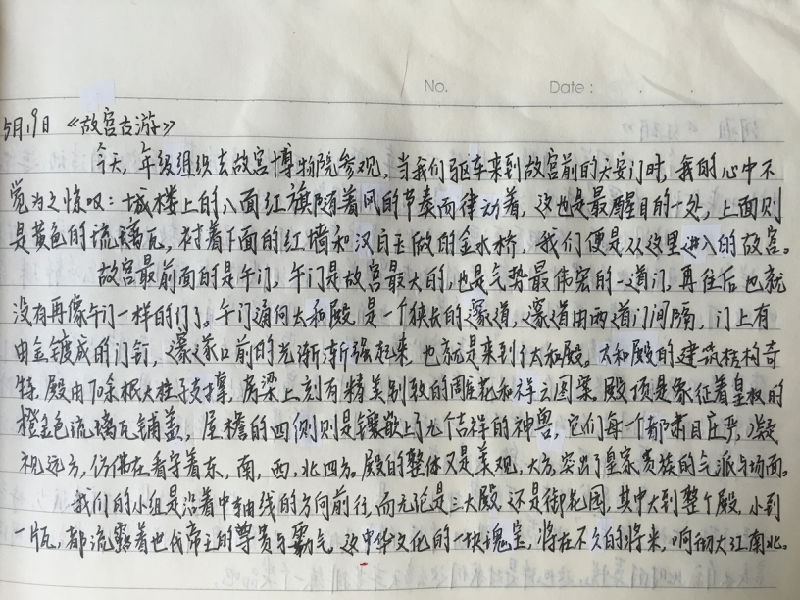 No. Date:
5月19日 《故宫古游》
今天，年级组织去故宫博物院参观，当我们驱车来到故宫前的天安门时，我的心中不
觉为之惊叹：城楼上的八面红旗随着风的节奏而律动着，这也是最醒目的一处，上面则
是黄色的琉璃瓦，衬着下面的红墙和汉白玉做的金水桥，我们便是从这里进入的故宫。
故宫最前面的是午门，午门是故宫最大的，也是气势最伟宏的一道门，再往后也就
没有再像午门一样的门了。午门通向太和殿是一个狭长的邃道，邃道由两道门间隔，门上有
由金镀成的门钉，邃邃口前的光渐渐强起来，也就是来到了太和殿。太和殿的建筑结构奇
特，殿由70余根大柱子支撑，房梁上刻有精美别致的雕花和祥云图案。殿顶是象征着皇权的
橙金色琉璃瓦铺盖，屋檐的四侧则是镶嵌上了九个吉祥的神兽，它们每一个都肃目庄严，凝
视远方，仿佛在看守着东，南，西，北四方。殿的整体又是美观，大方，突出了皇家贵族的气派与场面。
我们的小组是沿着中轴线的方向前往，而无论是三大殿，还是御花园，其中大到整个殿，小到
一瓦，都流露着世代帝王的尊贵与霸气，这中华文化的一块瑰宝，将在不久的将来，响彻大江南北。